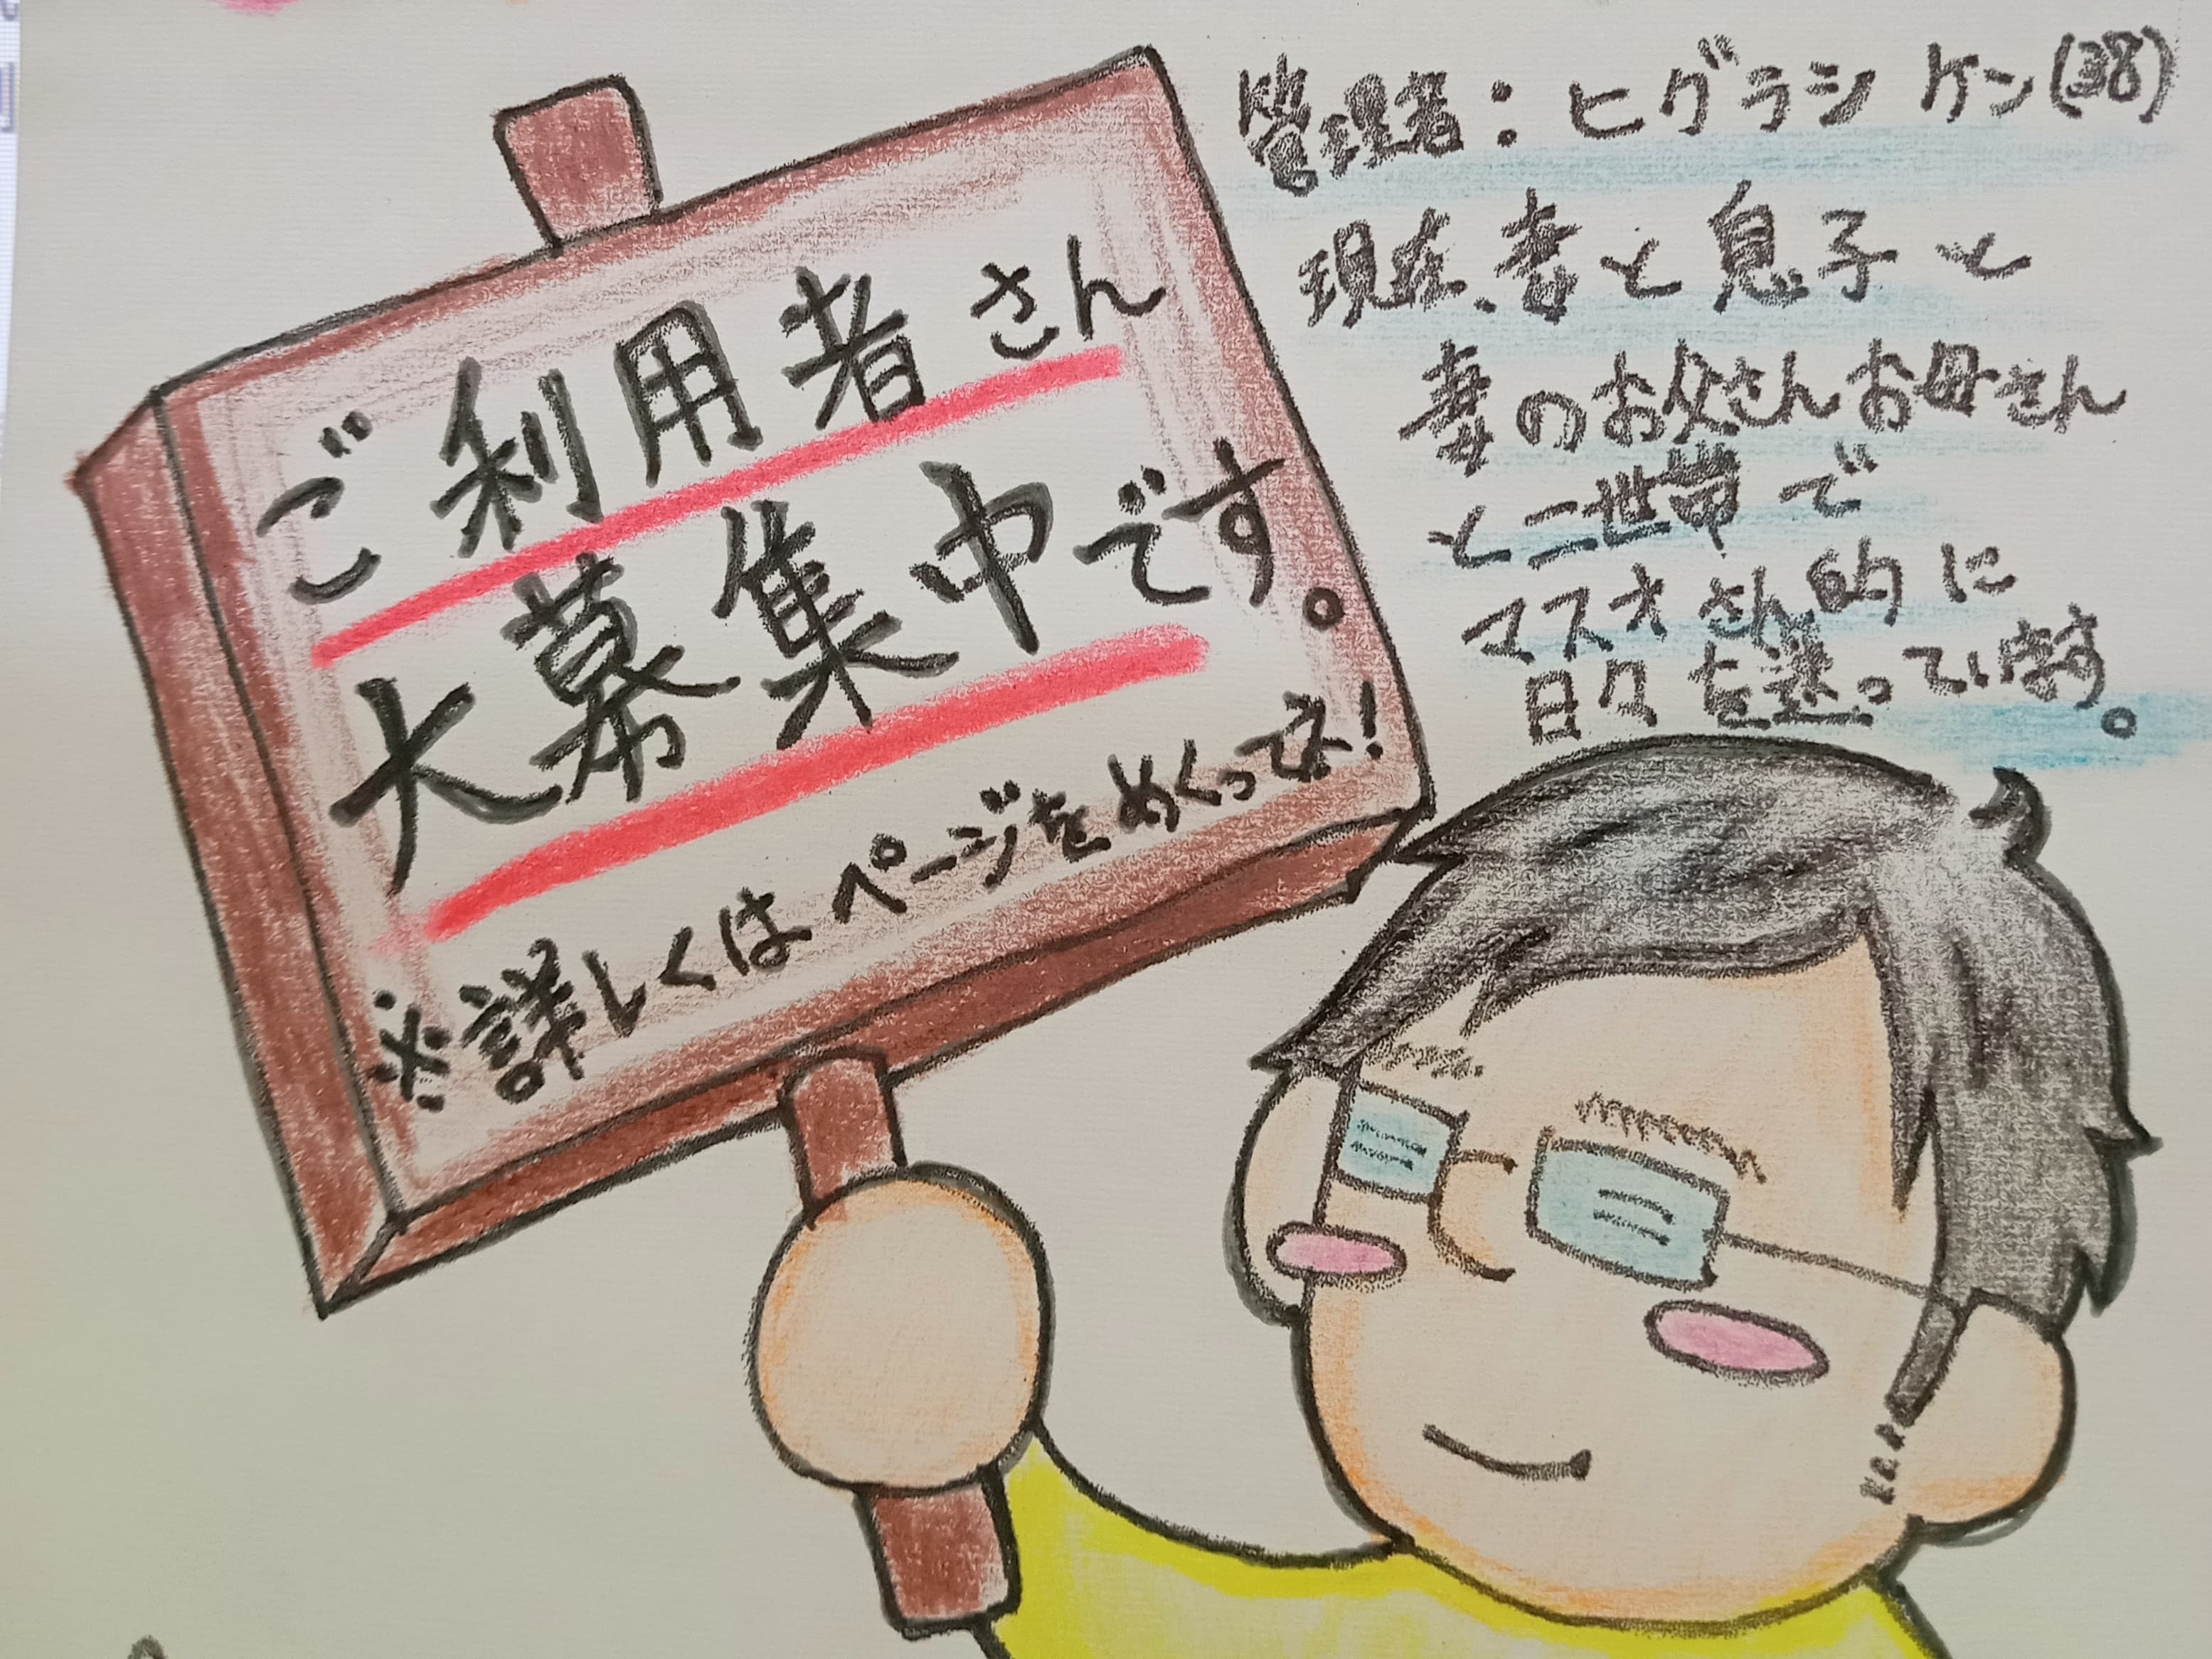 ご利用者さん
大募集中です。
※詳しくはページをめくってネ!
管理者:ヒグラシ ケン(38)
現在、妻と息子と
妻のお父さんお母さん
と二世帯で
マスオさん的に
日々を送っています。